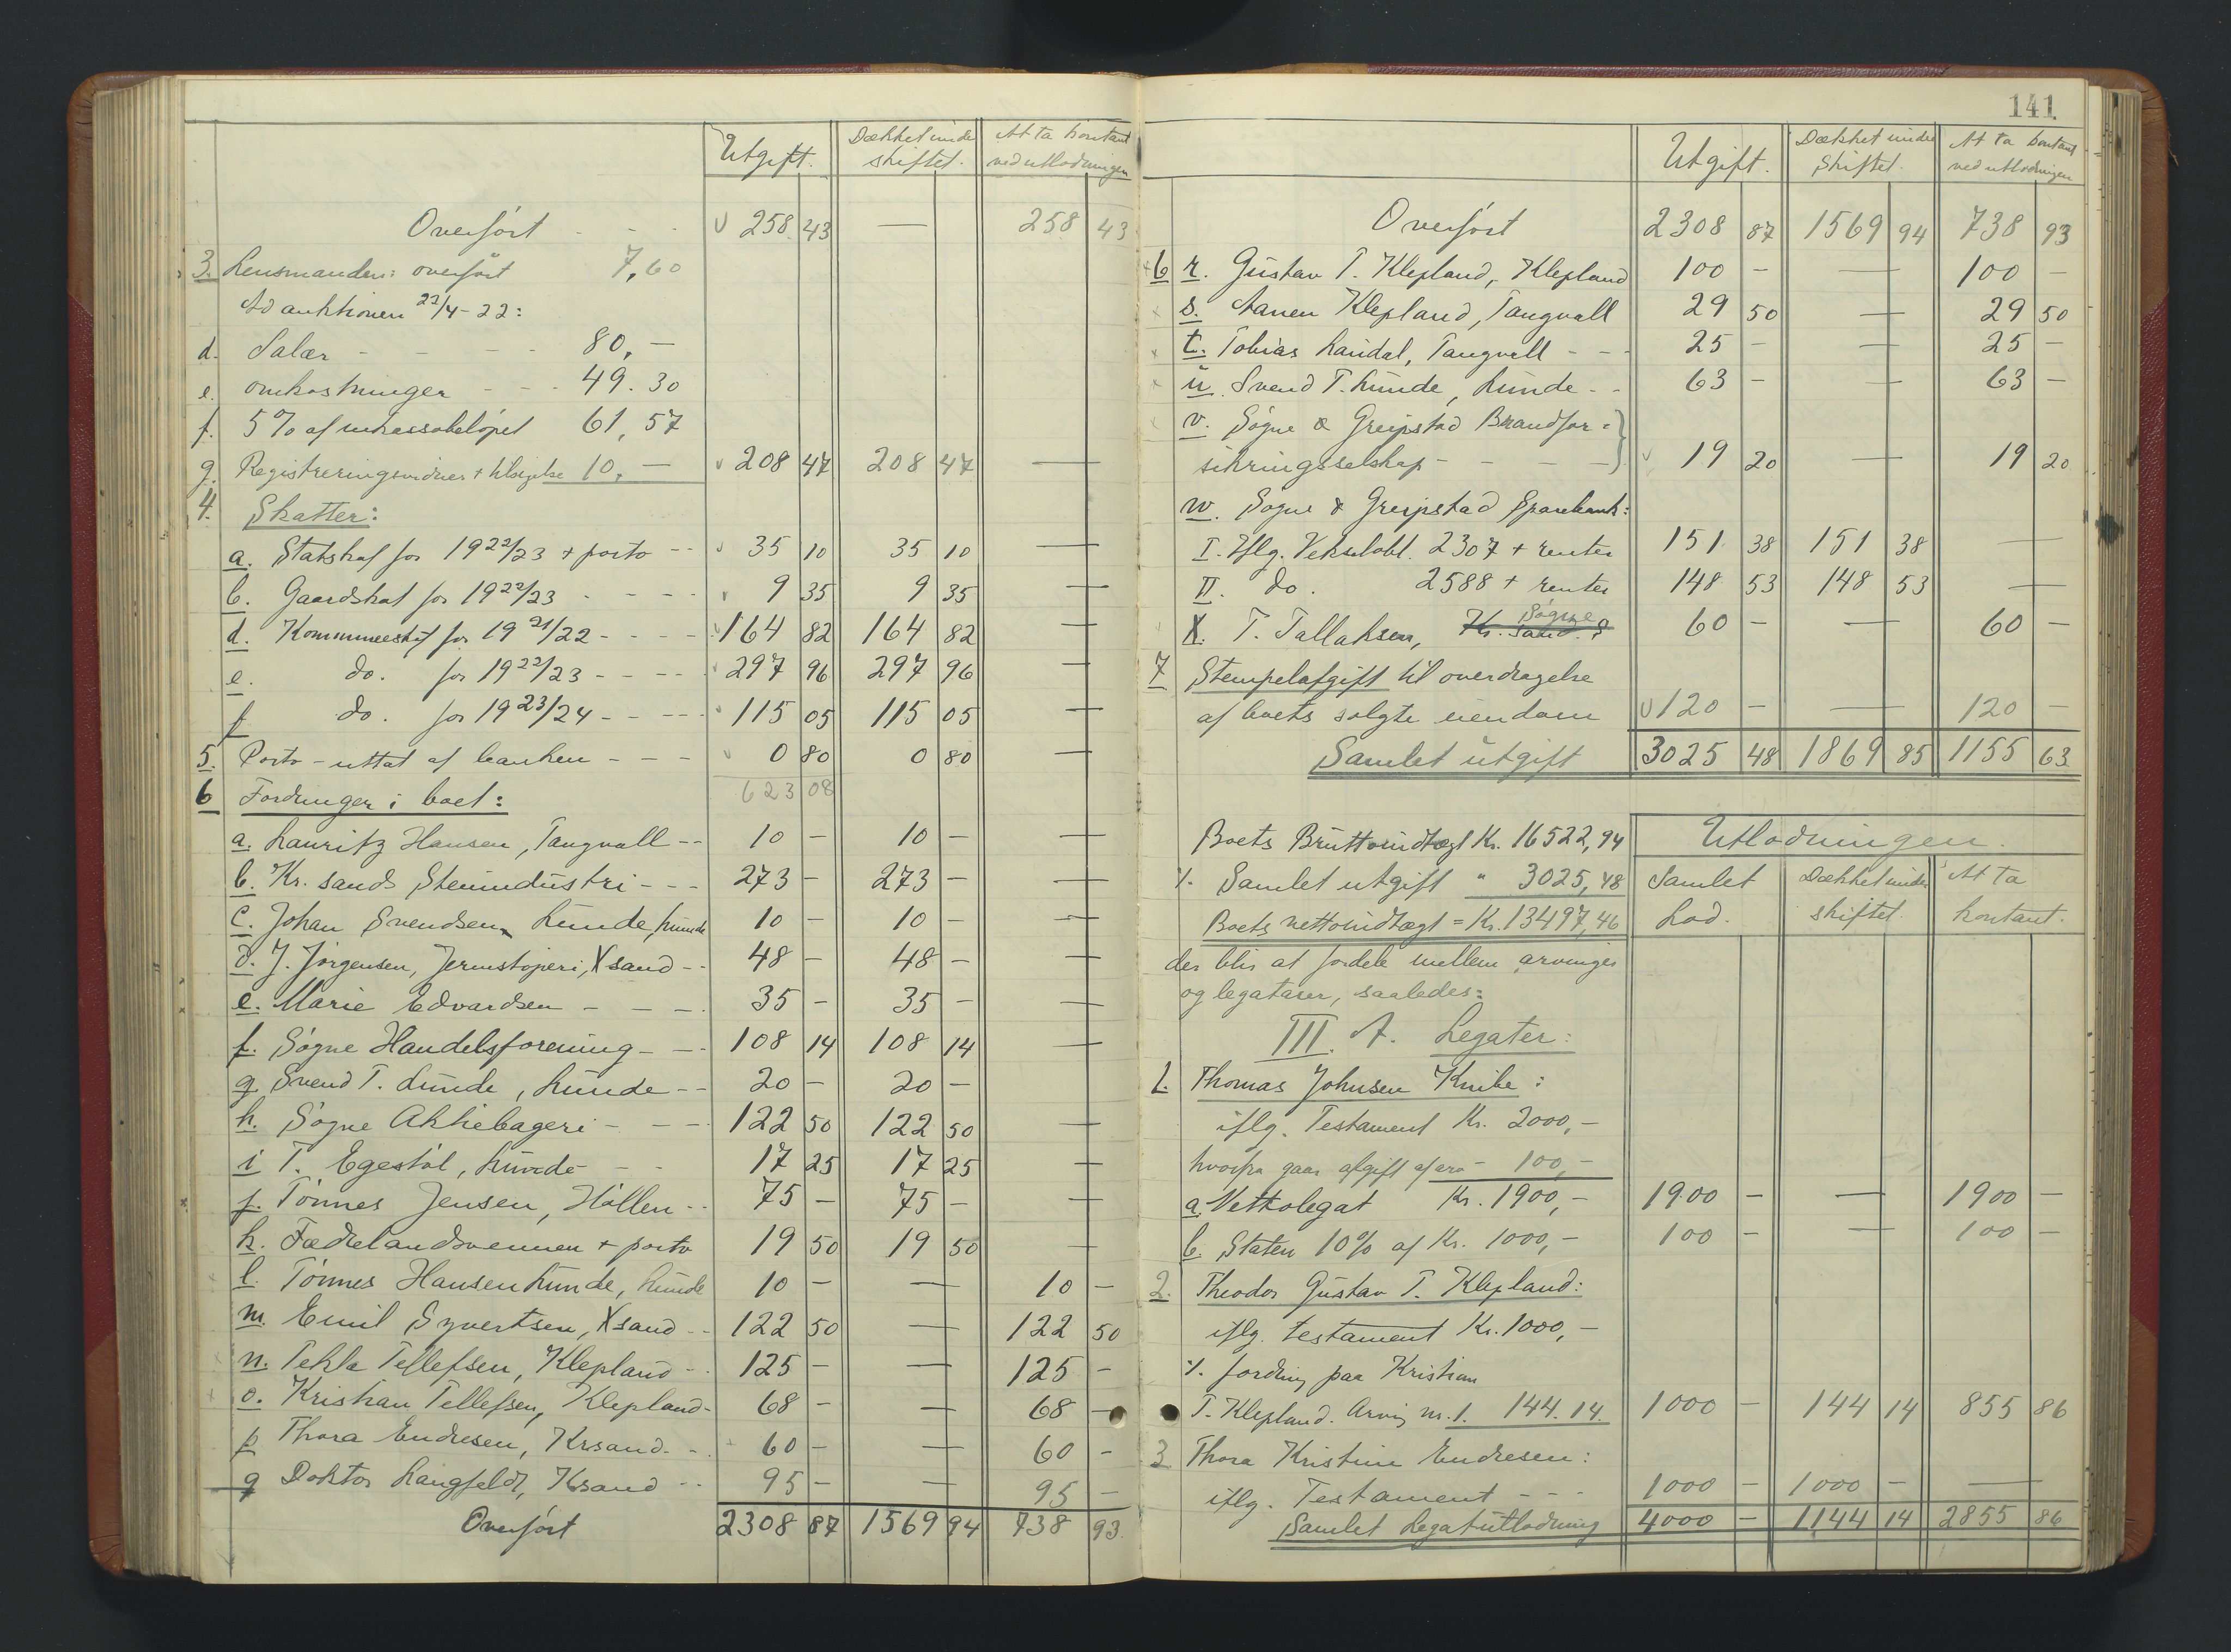 Utgift. Dækket under At ta kontant
skiftet. ved utlodningen
Overført - - - 258 43 — 258 43
3. Lensmanden: overført 7,60
Ad auktionen 22/4-22:
d. Salær - - - - 80,—
e. omkostninger - - - 49.30
f. 5% af inkassobeløpet 61,57
g. Registreringsvidner + tilsigelse 10,— 208 47 208 47 —
4. Skatter:
a. Statskat for 1922/23 + porto -- 35 10 35 10 —
b. Gaardskat for 1922/23 - - - - 9 35 9 35 —
d. Kommuneskat for 1921/22 - - - - 164 82 164 82 —
e. do. for 1922/23 - - - - 297 96 297 96 —
f do. for 1923/24 - - - - 115 05 115 05 —
5. Porto - uttat af banken - - - 0 80 0 80 —
6 Fordringer i boet: 623 08
a. Lauritz Hansen, Tangvall -- 10 — 10 — —
b. Kr.sands Stenindustri - - - 273 — 273 — —
c. Johan Svendsen Lunde, Lunde 10 — 10 — —
d. J. Jørgensen, Jernstøperi, Xsand -- 48 — 48 — —
e. Marie Edvardsen - - - 35 — 35 — —
f. Søgne Handelsforening - - - 108 14 108 14 —
g. Svend T. Lunde, Lunde -- 20 — 20 — —
h. Søgne Aktiebageri - - - 122 50 122 50 —
i T. Egestøl, Lunde - - 17 25 17 25 —
j. Tønnes Jensen, Høllen -- 75 — 75 — —
k. Fædrelandsvennen + porto 19 50 19 50 —
l. Tønnes Hansen Lunde, Lunde 10 — — 10 —
m. Emil Syvertsen, Xsand -- 122 50 — 122 50
n. Tekla Tellefsen, Klepland -- 125 — — 125 —
o. Kristian Tellefsen, Klepland - 68 — — 68 —
p Thora Endresen, Krsand. -- 60 — — 60 —
q Doktor Langfeldt, Krsand -- 95 — — 95 —
Overført 2308 87 1569 94 738 93.
141.
Utgift. Dækket under At ta kontant
skiftet. ved utlodningen
Overført 2308 87 1569 94 738 93
6 r. Gustav T. Klepland, Klepland 100 — — 100 —
s. Aanen Klepland, Tangvall 29 50 — 29 50
t. Tobias Landal, Tangvall - - - 25 — — 25 —
u. Svend T. Lunde, Lunde - - 63 — — 63 —
v. Søgne & Greipstad Brandfor=
sikringsselskap - - - - - 19 20 — 19 20
w. Søgne & Greipstad Sparebank:
I. Iflg. Vekselobl. 2307 + renter 151 38 151 38 —
II. do. 2588 + renter 148 53 148 53 —
Søgne
X. T. Tallaksen, Kr. sand. S 60 — — 60 —
7 Stempelafgift til overdragelse
af boets solgte eiendom 120 — — 120 —
Samlet utgift 3025 48 1869 85 1155 63
Boets Bruttoindtægt Kr. 16522,94 Utlodningen.
÷ Samlet utgift " 3025,48 Samlet Dækket under At ta
Boets nettoindtægt = Kr. 13497,46 Lod. skiftet. kontant.
der blir at fordele mellem arvinger
og legatarer, saaledes:
III. A. Legater:
1. Thomas Johnsen Knibe:
iflg. Testament Kr. 2000,—
hvorfra gaar afgift af arv - 100,—
a. Nettolegat Kr. 1900,— 1900 — — 1900 —
b. Staten 10% af Kr. 1000,— 100 — — 100 —
2. Theodor Gustav T. Klepland:
iflg. testament Kr. 1000,—
÷ fordring paa Kristian
T. Klepland. Arving nr. 1. 144.14. 1000 — 144 14 855 86
3 Thora Kristine Endresen:
iflg. Testament - - - 1000 — 1000 — —
Samlet Legatutlodning 4000 — 1144 14 2855 86